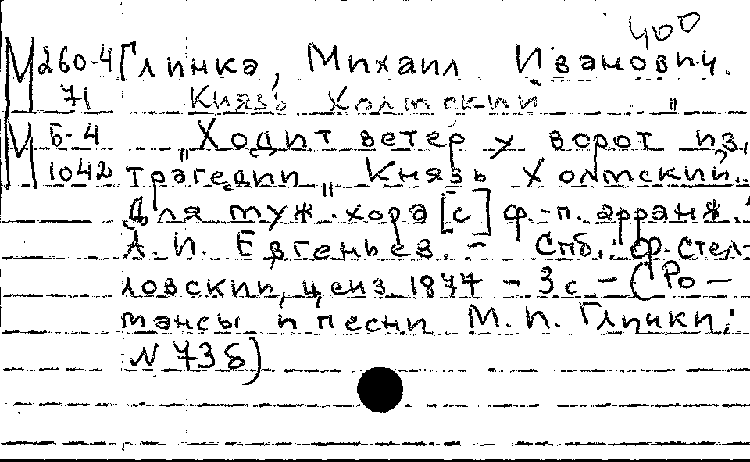 400
М 260-4 Глинка, Михаил Иванович.
71 Князь Холмский "
М Б-4 „Ходит ветер у ворот" из
1042 трагедии „Князь Холмский".
Для муж. хора [с] ф.-п. арранж.
А. И. Евгеньев. - Спб.: Ф. Стел-
ловский, ценз 1877 - 3с - (Ро-
мансы и песни М. И. Глинки;
N 73б)